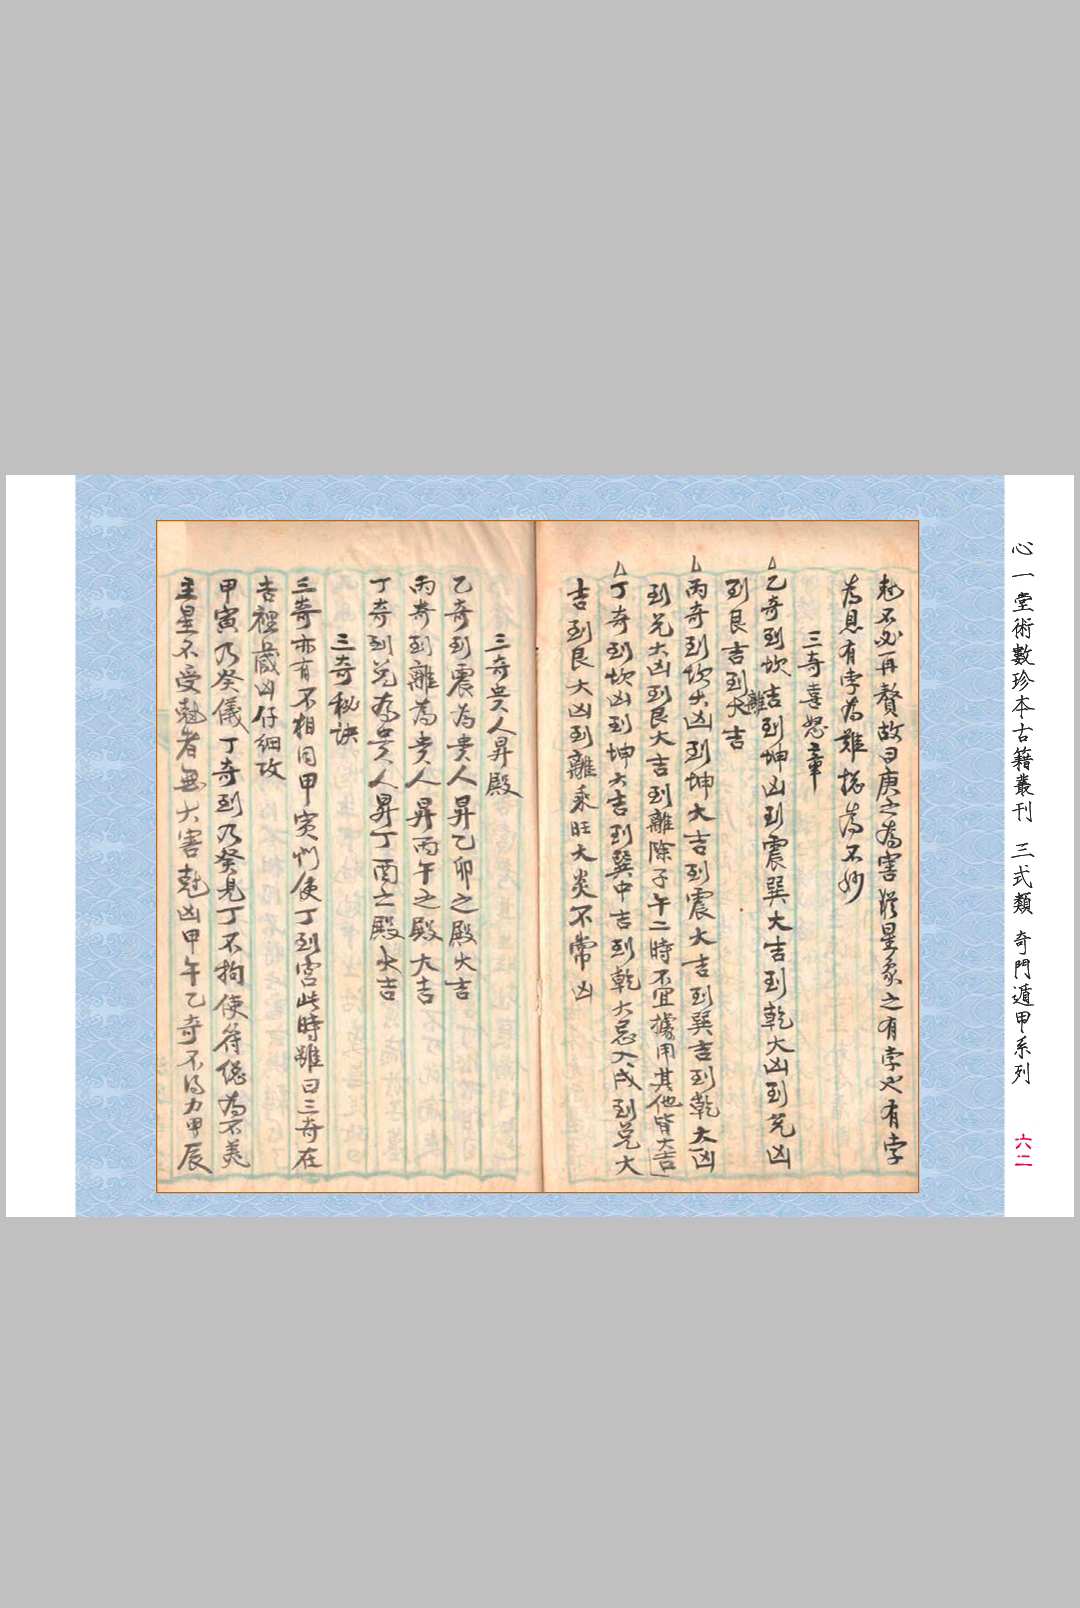 勑不必再贅故曰庚之為害從星象之有孛也有孛
為見有孛為難據為不妙
三奇喜怒章
乙奇到坎吉到坤凶到震巽大吉到乾大凶到兌凶
到艮吉到離大吉
丙奇到坎大凶到坤大吉到震大吉到巽吉到乾大凶
到兌大凶到艮大吉到離除子午二時不宜據用其他皆大吉
丁奇到坎凶到坤大吉到巽中吉到乾大忌大戌到兌大
吉到艮大凶到離乘旺大炎不常凶
三奇貴人昇殿
乙奇到震為貴人昇乙卯之殿大吉
丙奇到離為貴人昇丙午之殿大吉
丁奇到兌為貴人昇丁酉之殿大吉
三奇秘訣
三奇亦有不相同甲寅們使丁到宮此時雖曰三奇在
吉裡藏凶仔細攷
甲寅乃癸儀丁奇到乃癸見丁不拘使符總為不美
主星不受尅者無大害尅凶甲午乙奇不得力甲辰
心一堂術數珍本古籍叢刊 三式類 奇門遁甲系列
六二